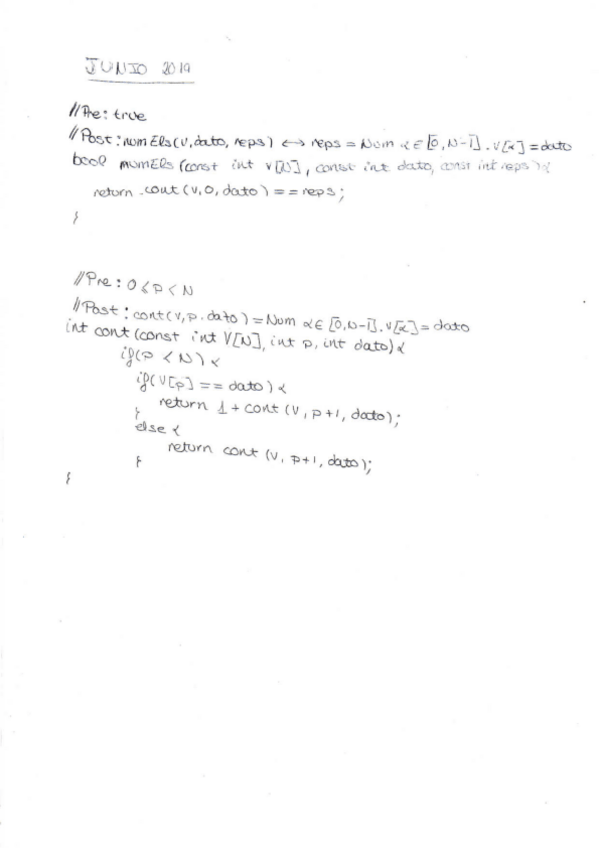 JUNIO 2019
//Pre: true
//Post: numEls(v, dato, reps) ↔ reps = Num α ∈ [0, N-1]. v[α] = dato
bool numEls (const int v[N], const int dato, const int reps) {
return cont (v, 0, dato) == reps;
}
//Pre: 0 ≤ p < N
//Post: cont(v, p, dato) = Num α ∈ [0, N-1]. v[α] = dato
int cont (const int V[N], int p, int dato) {
if (p < N) {
if (V[p] == dato) {
return 1 + cont (v, p+1, dato);
}
else {
return cont (v, p+1, dato);
}
}